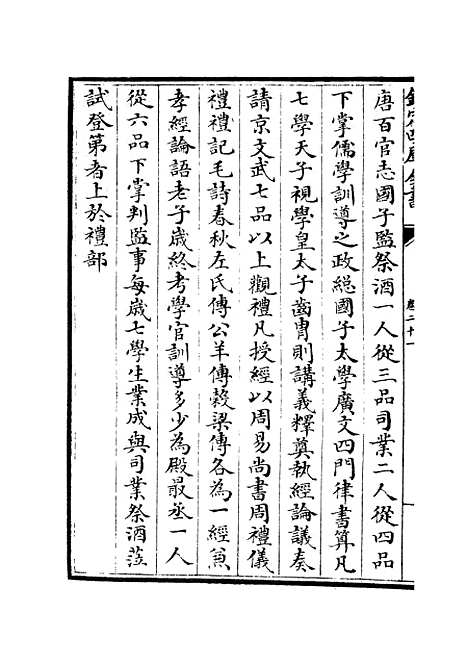 欽定四庫全書
卷二十一
唐百官志國子監祭酒一人從三品司業二人從四品
下掌儒學訓導之政緫國子太學廣文四門律書算凡
七學天子視學皇太子齒胄則講義釋奠執經論議奏
請京文武七品以上觀禮凡授經以周易尚書周禮儀
禮禮記毛詩春秋左氏傳公羊傳穀梁傳各為一經兼
孝經論語老子歳終考學官訓導多少為殿最丞一人
從六品下掌判監事每歳七學生業成與司業祭酒蒞
試登第者上於禮部